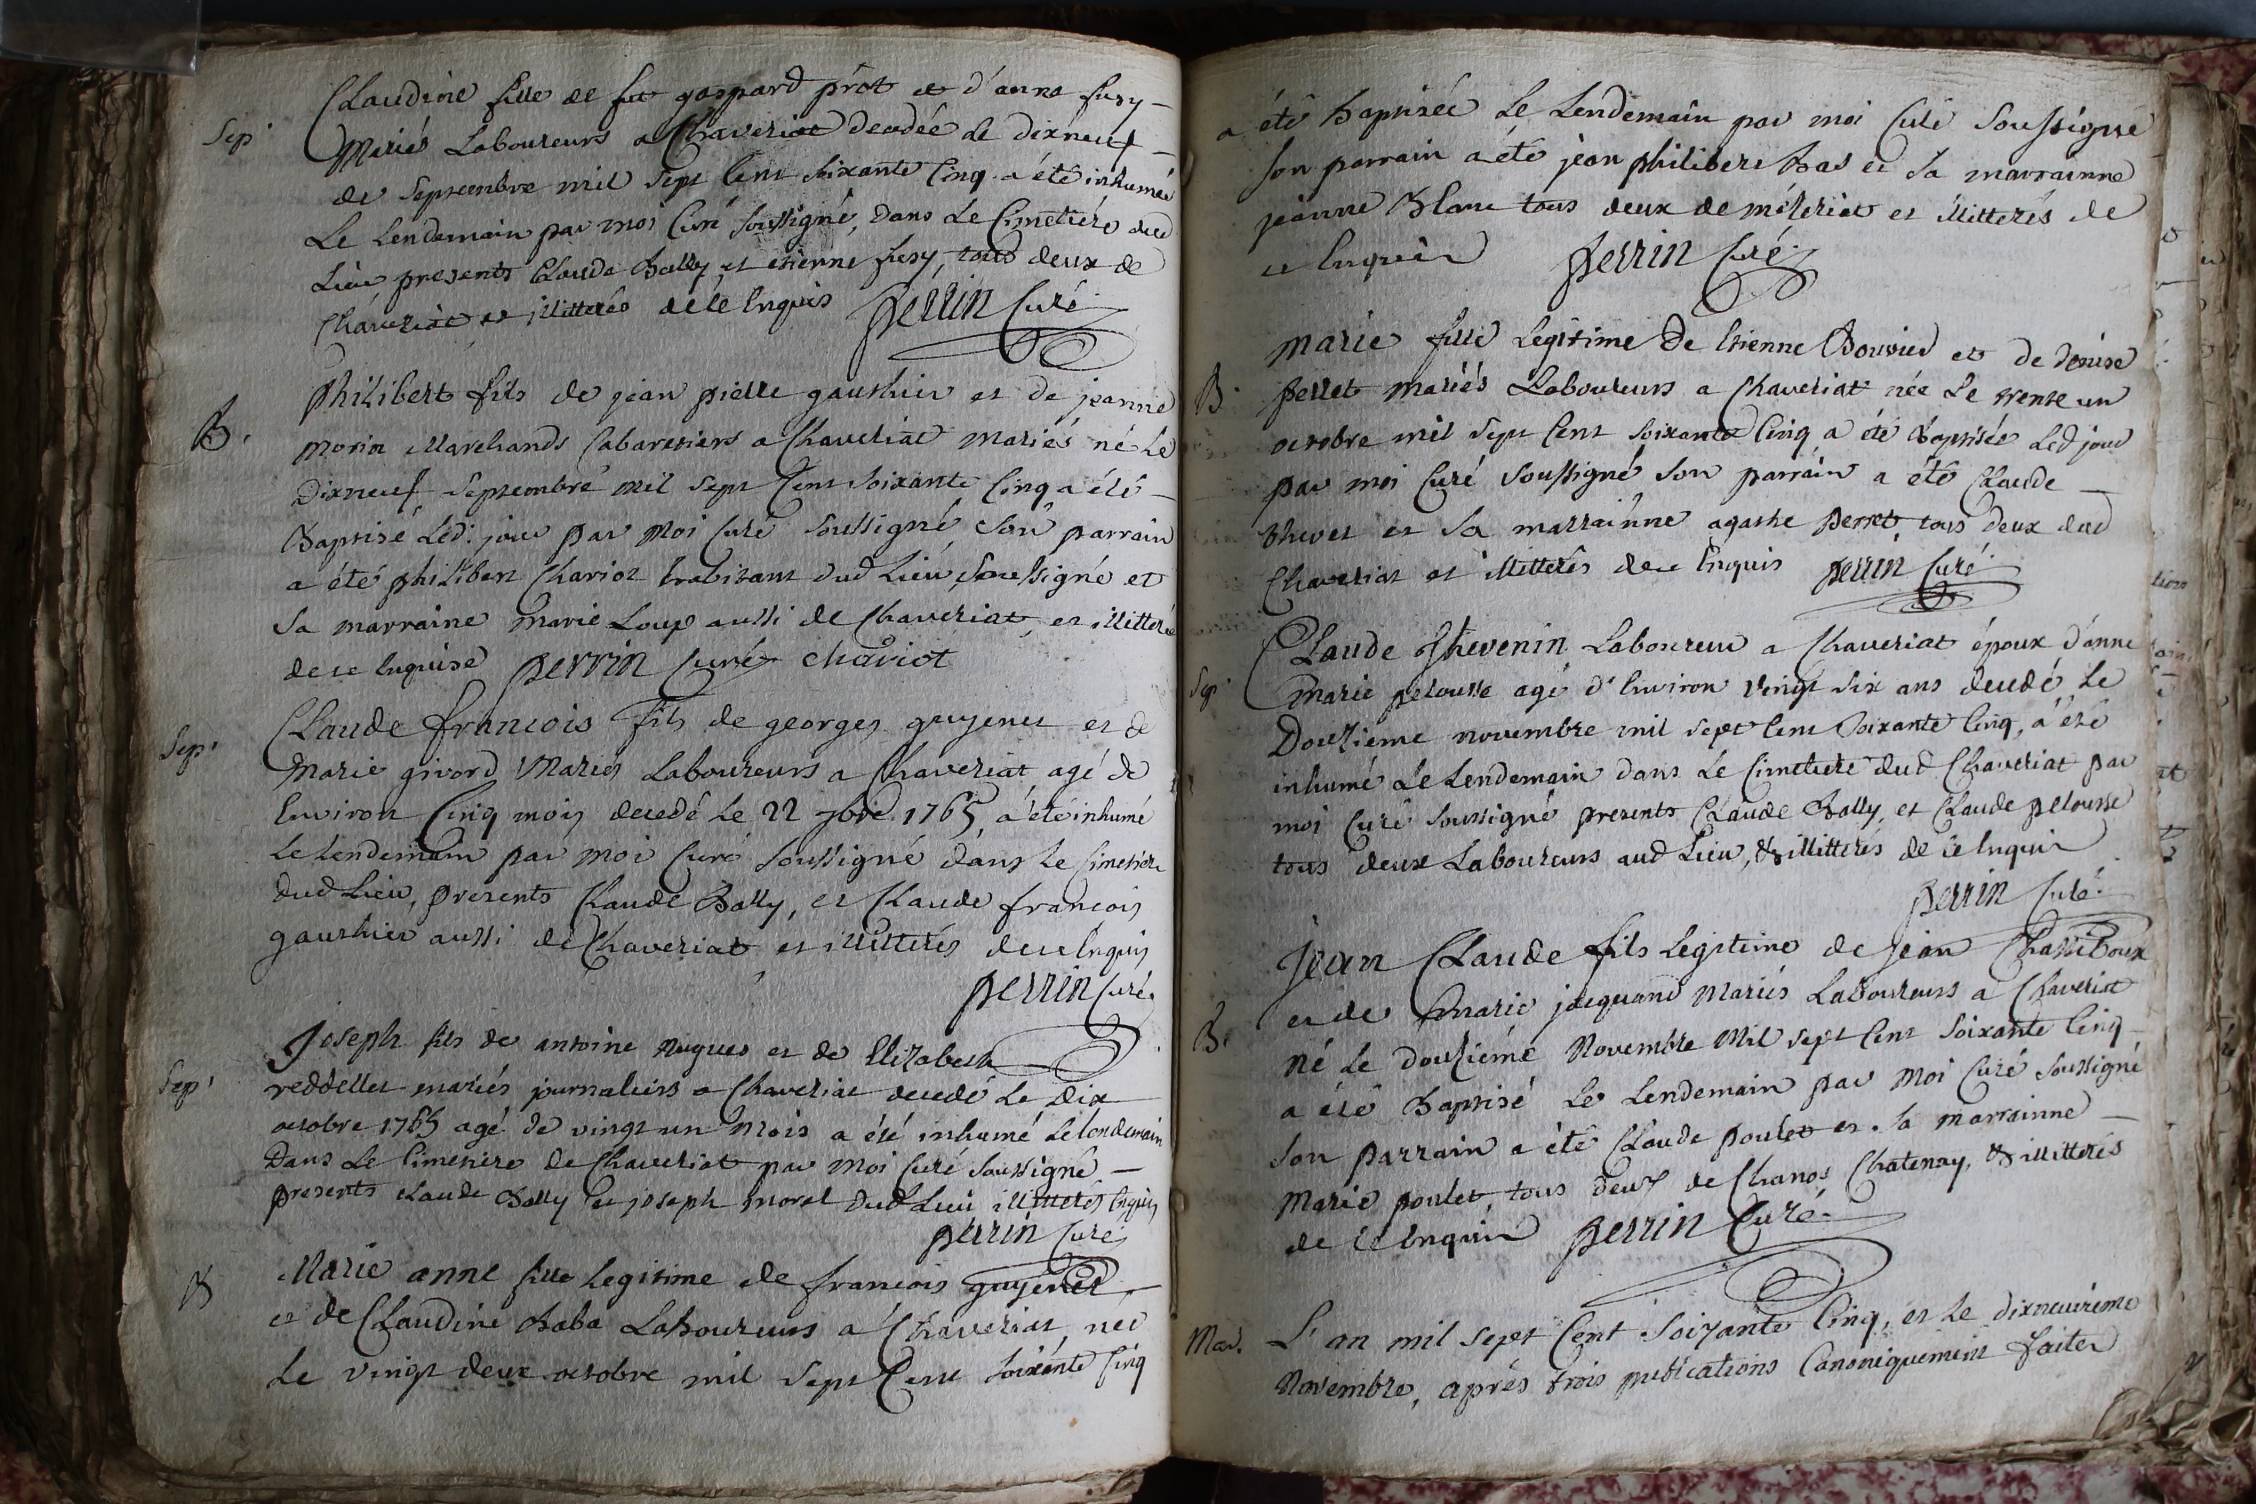 Claudine fille de fut gaspard prot et d'anne fusy
Sep.t
Mariés Laboureurs a Chaveriat decedée le dixneuf
de Septembre mil sept Cent soixante Cinq a été inhumée
Le Lendemain par moi Curé soussigné, dans le Cimetiére dud
Lieu presents Claude Bally et etienne fusy, tous deux de
Chaveriat et illitterés de ce Enquis perrin Curé
philibert fils de jean pierre gauthier et de jeanne
B.
morin Marchands Cabaretiers a Chaveriat mariés né Le
Dixneuf Septembre mil sept Cent soixante Cinq a été
Baptisé Led. jour par moi Curé soussigné Son parrain
a été philibert Chariot habitant dud Lieu, soussigné et
Sa marraine marie Loup aussi de Chaveriat et illitterée
de ce Enquise perrin Curé chariot
Claude francois fils de georges guyenet et de
Sep.t
Marie givord Mariés Laboureurs a Chaveriat agé de
Environ Cinq mois decedé le 22 7bre 1765 a été inhumé
Le Lendemain par moi Curé soussigné dans Le Cimetiére
dud Lieu, presents Claude Bally, et Claude francois
gauthier aussi de Chaveriat et illitterés de ce Enquis
perrin Curé
Joseph fils de antoine nugues et de Elizabeth
Sep.t
reddellet mariés journaliers a Chaveriat decedé Le Dix
octobre 1765 agé de vingt un Mois a été inhumé Le lendemain
Dans Le Cimetiére de Chaveriat par moi Curé soussigné
presents Claude Bally et joseph morel dud Lieu illitterés Enquis
perrin Curé
B
Marie anne fille Legitime de francois guyenet,
et de Claudine Baba Laboureurs a Chaveriat, née
Le vingt deux octobre mil sept Cent soixante Cinq
a été Baptisée Le Lendemain par moi Curé Soussigné
Son parrain a été jean philibert Bas et Sa marrainne
jeanne Blanc tous deux de mézeriat et illitterés de
ce Enquis perrin Curé
marie fille Legitime De Etienne Bouvier et de denise
B.
perret mariés Laboureurs a Chaveriat née Le trente un
octobre mil sept Cent soixante Cinq a été Baptisée Led jour
par moi Curé Soussigné Son parrain a été Claude
thevet et Sa marrainne agathe perret tous deux dud
Chaveriat et illitterés de ce Enquis perrin Curé
Claude Thevenin Laboureur a Chaveriat époux d'anne
Sep.t
marie pelousse agé d'Environ vingt six ans decedé Le
Douzieme novembre mil sept Cent soixante Cinq, a été
inhumé Le Lendemain dans Le Cimetiere dud Chaveriat par
moi Curé soussigné presents Claude Bally, et Claude pelousse
tous deux Laboureurs aud Lieu, & illitterés de ce Enquis
perrin Curé
Jean Claude fils Legitime de Jean Chassiboux
et de marie jacquand mariés Laboureurs a Chaveriat
B.
né Le douzieme Novembre Mil sept Cent soixante Cinq
a été Baptisé Le Lendemain par moi Curé soussigné
son parrain a été Claude poulet et sa marrainne
Marie poulet tous deux de Chanos Chatenay, & illitterés
de ce Enquis perrin Curé
Mar.
L'an mil sept Cent soixante Cinq, et le dixneuvieme
Novembre, aprés trois publications Canoniquement faites